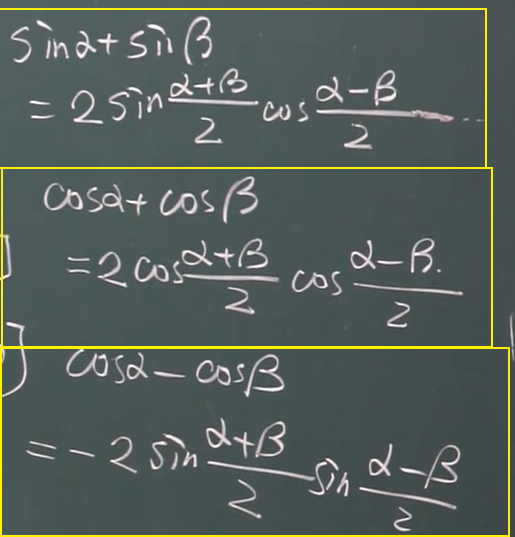 sinα+sinβ
=2sin (α+β)/2 cos (α-β)/2 ...
cosα+cosβ
=2cos (α+β)/2 cos (α-β)/2.
cosα-cosβ
=-2sin (α+β)/2 sin (α-β)/2